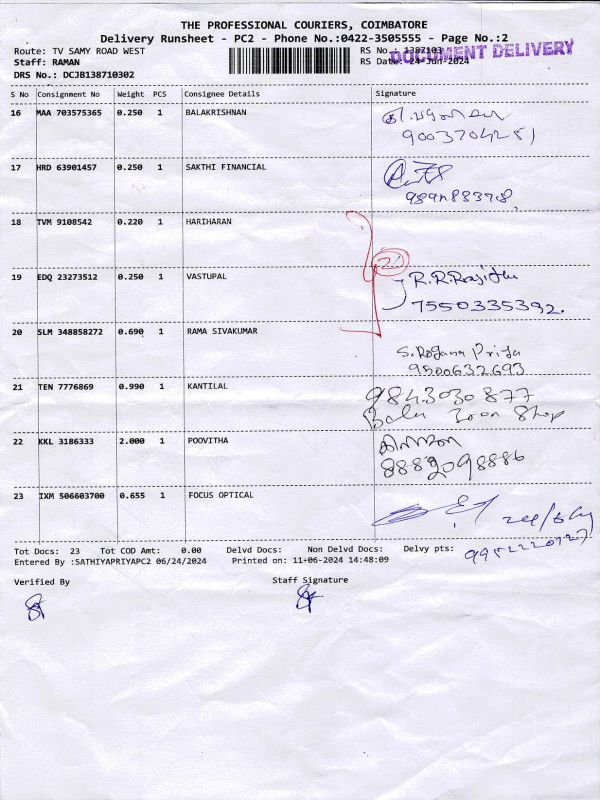 THE PROFESSIONAL COURIERS, COIMBATORE
Delivery Runsheet - PC2 - Phone No.:0422-3505555 - Page No.:2
Route: TV SAMY ROAD WEST RS No.: 1387103
DOCUMENT DELIVERY
Staff: RAMAN RS Date: 24-Jun-2024
DRS No.: DCJB138710302
S No Consignment No Weight PCS Consignee Details Signature
16 MAA 703575365 0.250 1 BALAKRISHNAN
9003704251
17 HRD 63901457 0.250 1 SAKTHI FINANCIAL
18 TVM 9108542 0.220 1 HARIHARAN
2
19 EDQ 23273512 0.250 1 VASTUPAL R.R.Rajithu
7550335392.
20 SLM 348858272 0.690 1 RAMA SIVAKUMAR
S. Rogana Priya
9500632693
21 TEN 7776869 0.990 1 KANTILAL 9843030877
Bala Iron Shop
22 KKL 3186333 2.000 1 POOVITHA
8882098886
23 IXM 506603700 0.655 1 FOCUS OPTICAL
Tot Docs: 23 Tot COD Amt: 0.00 Delvd Docs: Non Delvd Docs: Delvy pts:
Entered By :SATHIYAPRIYAPC2 06/24/2024 Printed on: 11-06-2024 14:48:09
Verified By Staff Signature